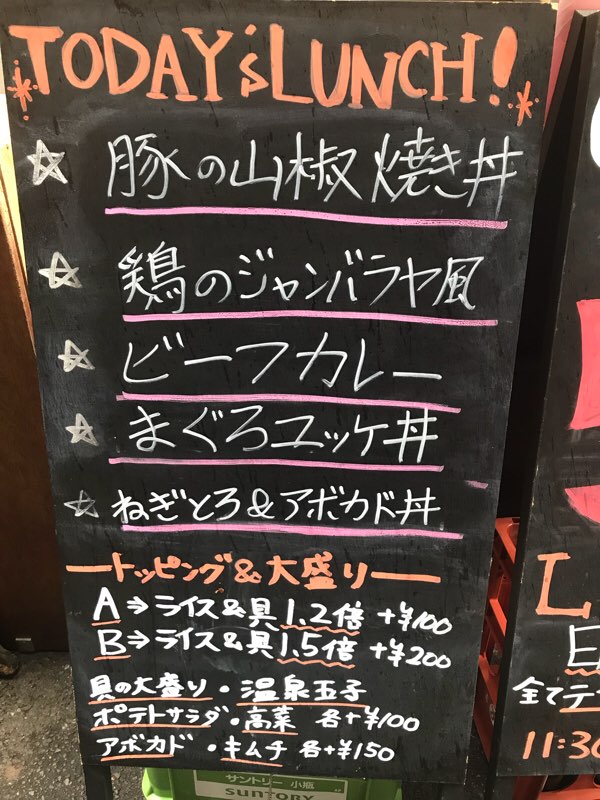 TODAY'S LUNCH!
☆ 豚の山椒焼き丼
☆ 鶏のジャンバラヤ風
☆ ビーフカレー
☆ まぐろユッケ丼
☆ ねぎとろ&アボカド丼
ートッピング&大盛りー
A⇒ライス&具1.2倍 +¥100
B⇒ライス&具1.5倍 +¥200
具の大盛り・温泉玉子
ポテトサラダ・高菜 各+¥100
アボカド・キムチ 各+¥150
サントリー 小瓶
SUNTORY
L
全てテ
11:30